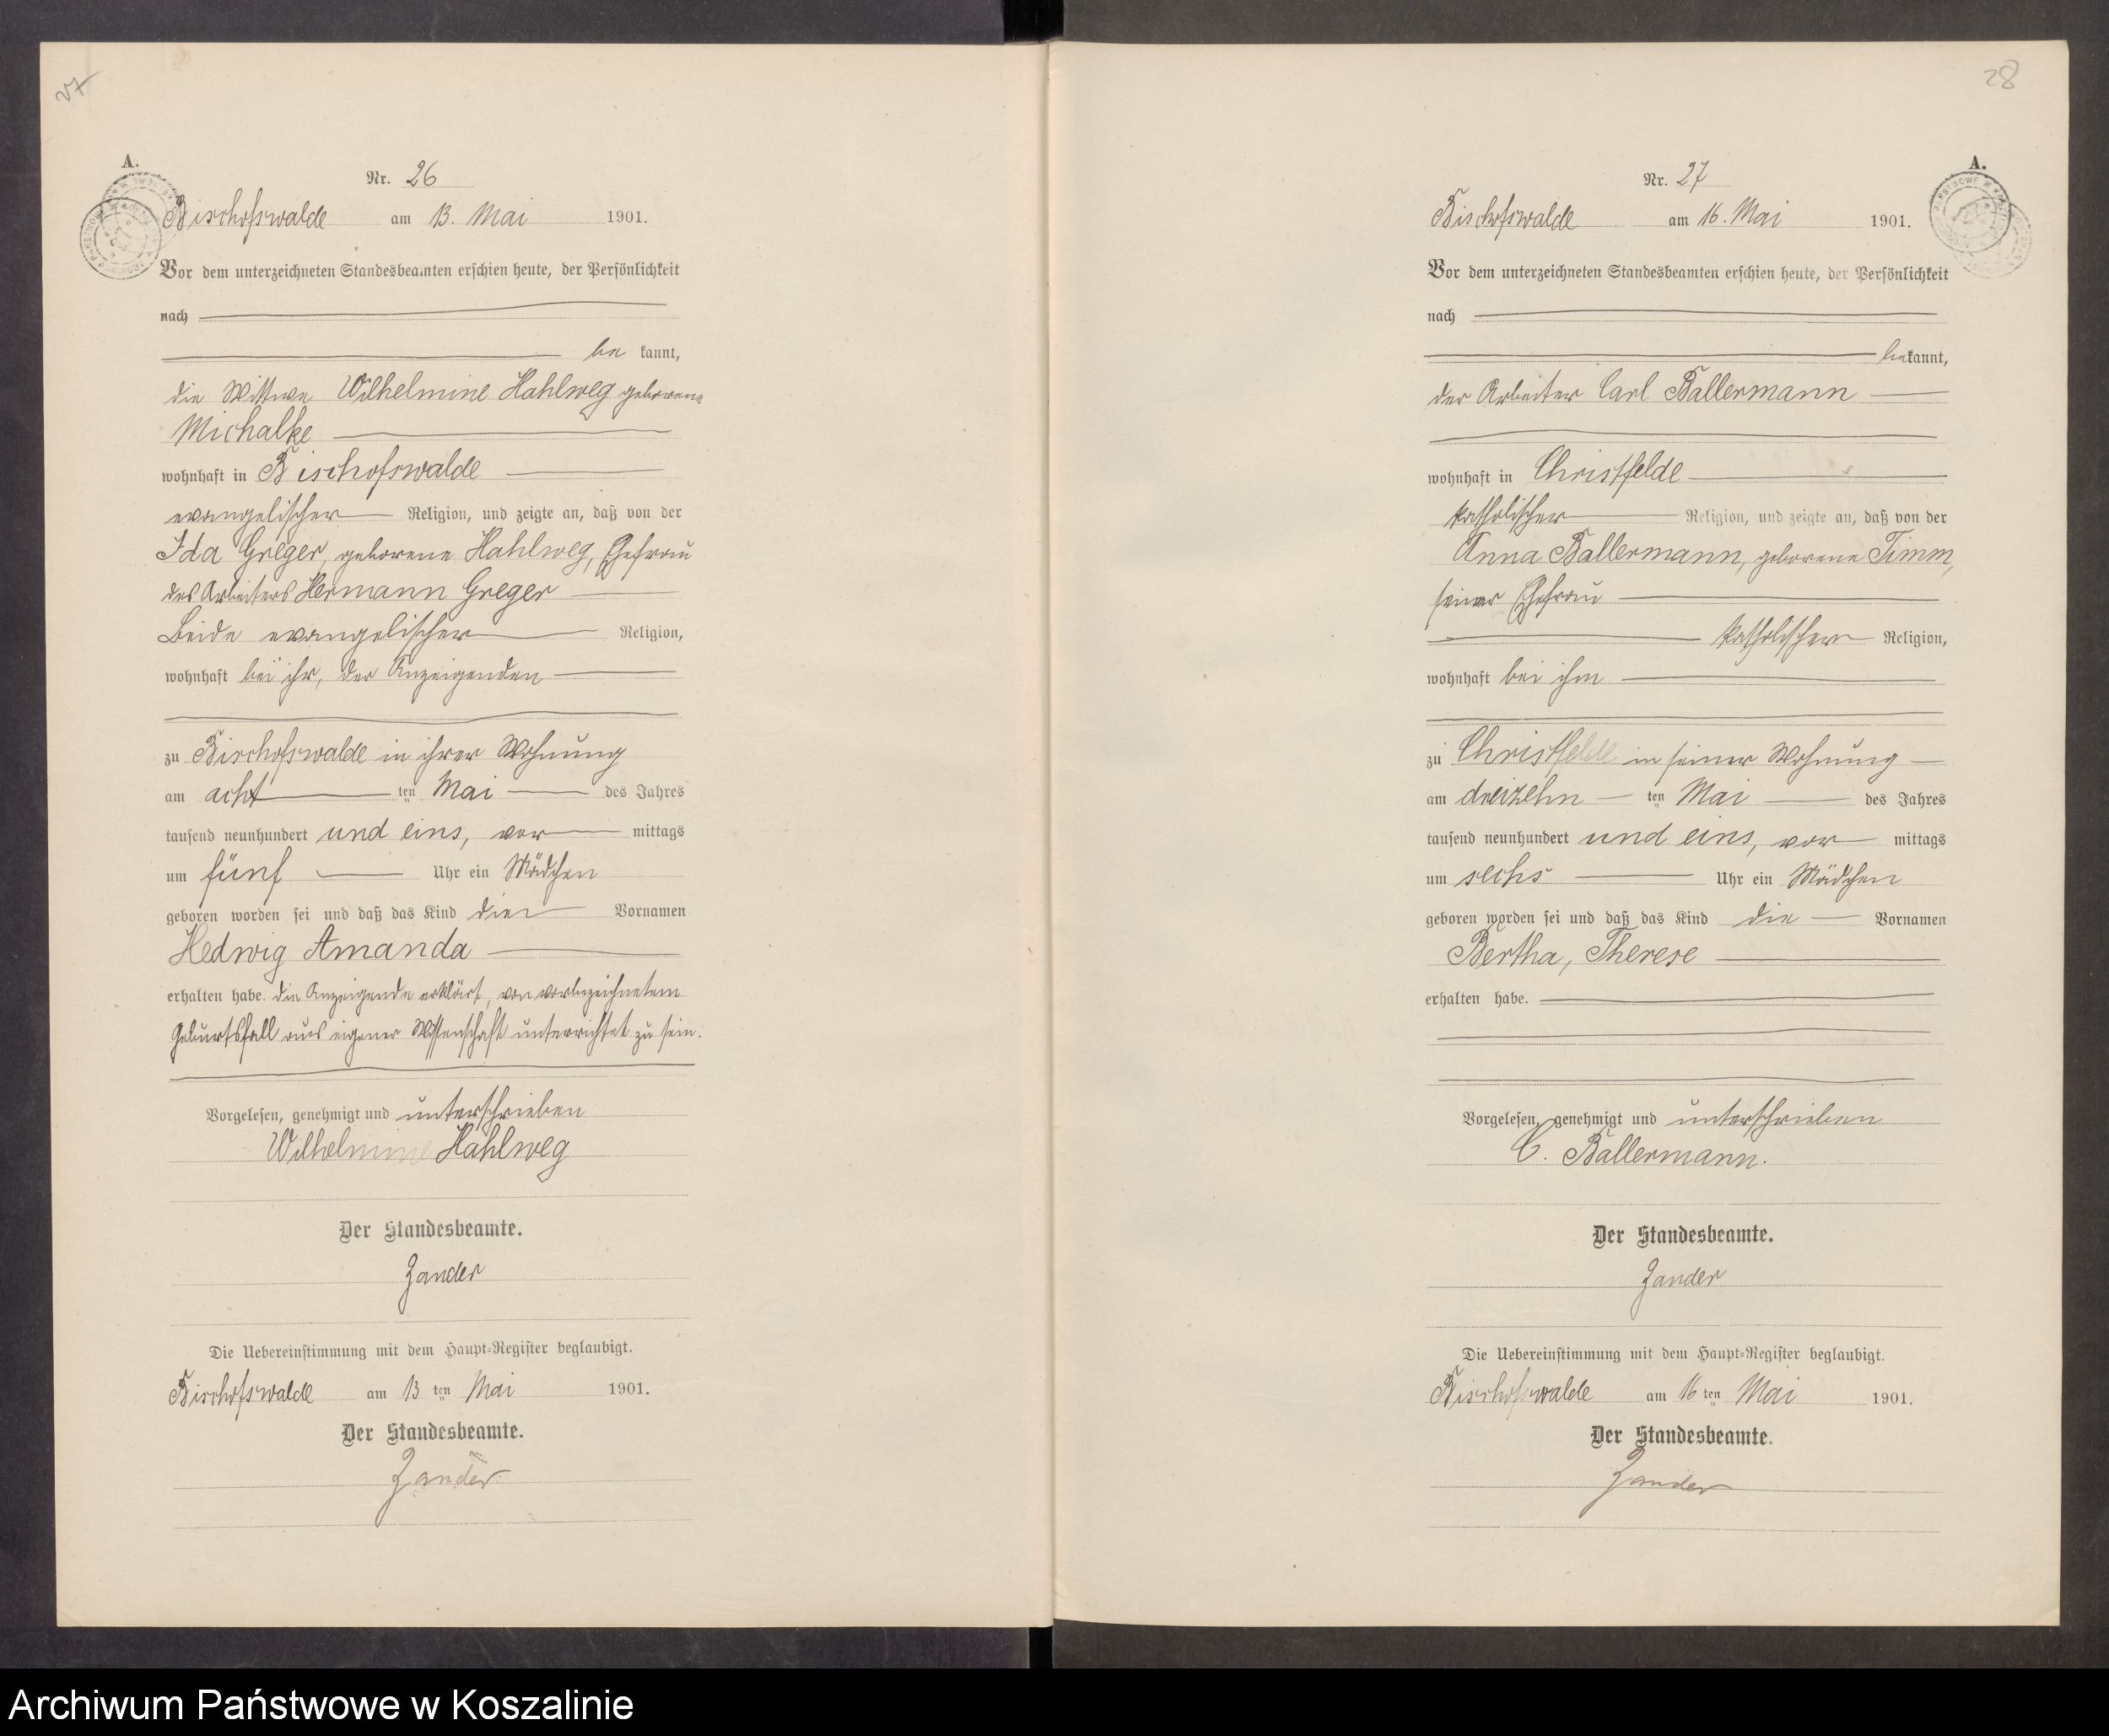 27
A.
Nr. 26
Bischofswalde am 13. Mai 1901.
Vor dem unterzeichneten Standesbeamten erschien heute, der Persönlichkeit
nach
be kannt,
die Wittwe Wilhelmine Hahlweg geborene
Michalke
wohnhaft in Bischofswalde
evangelischer Religion, und zeigte an, daß von der
Ida Greger, geborene Hahlweg, Ehefrau
des Arbeiters Hermann Greger
Beide evangelischer Religion,
wohnhaft bei ihr, der Anzeigenden
zu Bischofswalde in ihrer Wohnung
am acht ten Mai des Jahres
tausend neunhundert und eins, vor mittags
um fünf Uhr ein Mädchen
geboren worden sei und daß das Kind die Vornamen
Hedwig Amanda
erhalten habe. Die Anzeigende erklärt, von vorbezeichnetem
Geburtsfall aus eigener Wissenschaft unterrichtet zu sein.
Vorgelesen, genehmigt und unterschrieben
Wilhelmine Hahlweg
Der Standesbeamte.
Zander
Die Uebereinstimmung mit dem Haupt-Register beglaubigt.
Bischofswalde am 13 ten Mai 1901.
Der Standesbeamte.
Zander
28
A.
Nr. 27
Bischofswalde am 16. Mai 1901.
Vor dem unterzeichneten Standesbeamten erschien heute, der Persönlichkeit
nach
bekannt,
der Arbeiter Carl Ballermann
wohnhaft in Christfelde
katholischer Religion, und zeigte an, daß von der
Anna Ballermann, geborene Timm,
seiner Ehefrau
katholischer Religion,
wohnhaft bei ihm
zu Christfelde in seiner Wohnung
am dreizehn ten Mai des Jahres
tausend neunhundert und eins, vor mittags
um sechs Uhr ein Mädchen
geboren worden sei und daß das Kind die Vornamen
Bertha, Therese
erhalten habe.
Vorgelesen, genehmigt und unterschrieben
C. Ballermann.
Der Standesbeamte.
Zander
Die Uebereinstimmung mit dem Haupt-Register beglaubigt.
Bischofswalde am 16 ten Mai 1901.
Der Standesbeamte.
Zander
Archiwum Państwowe w Koszalinie